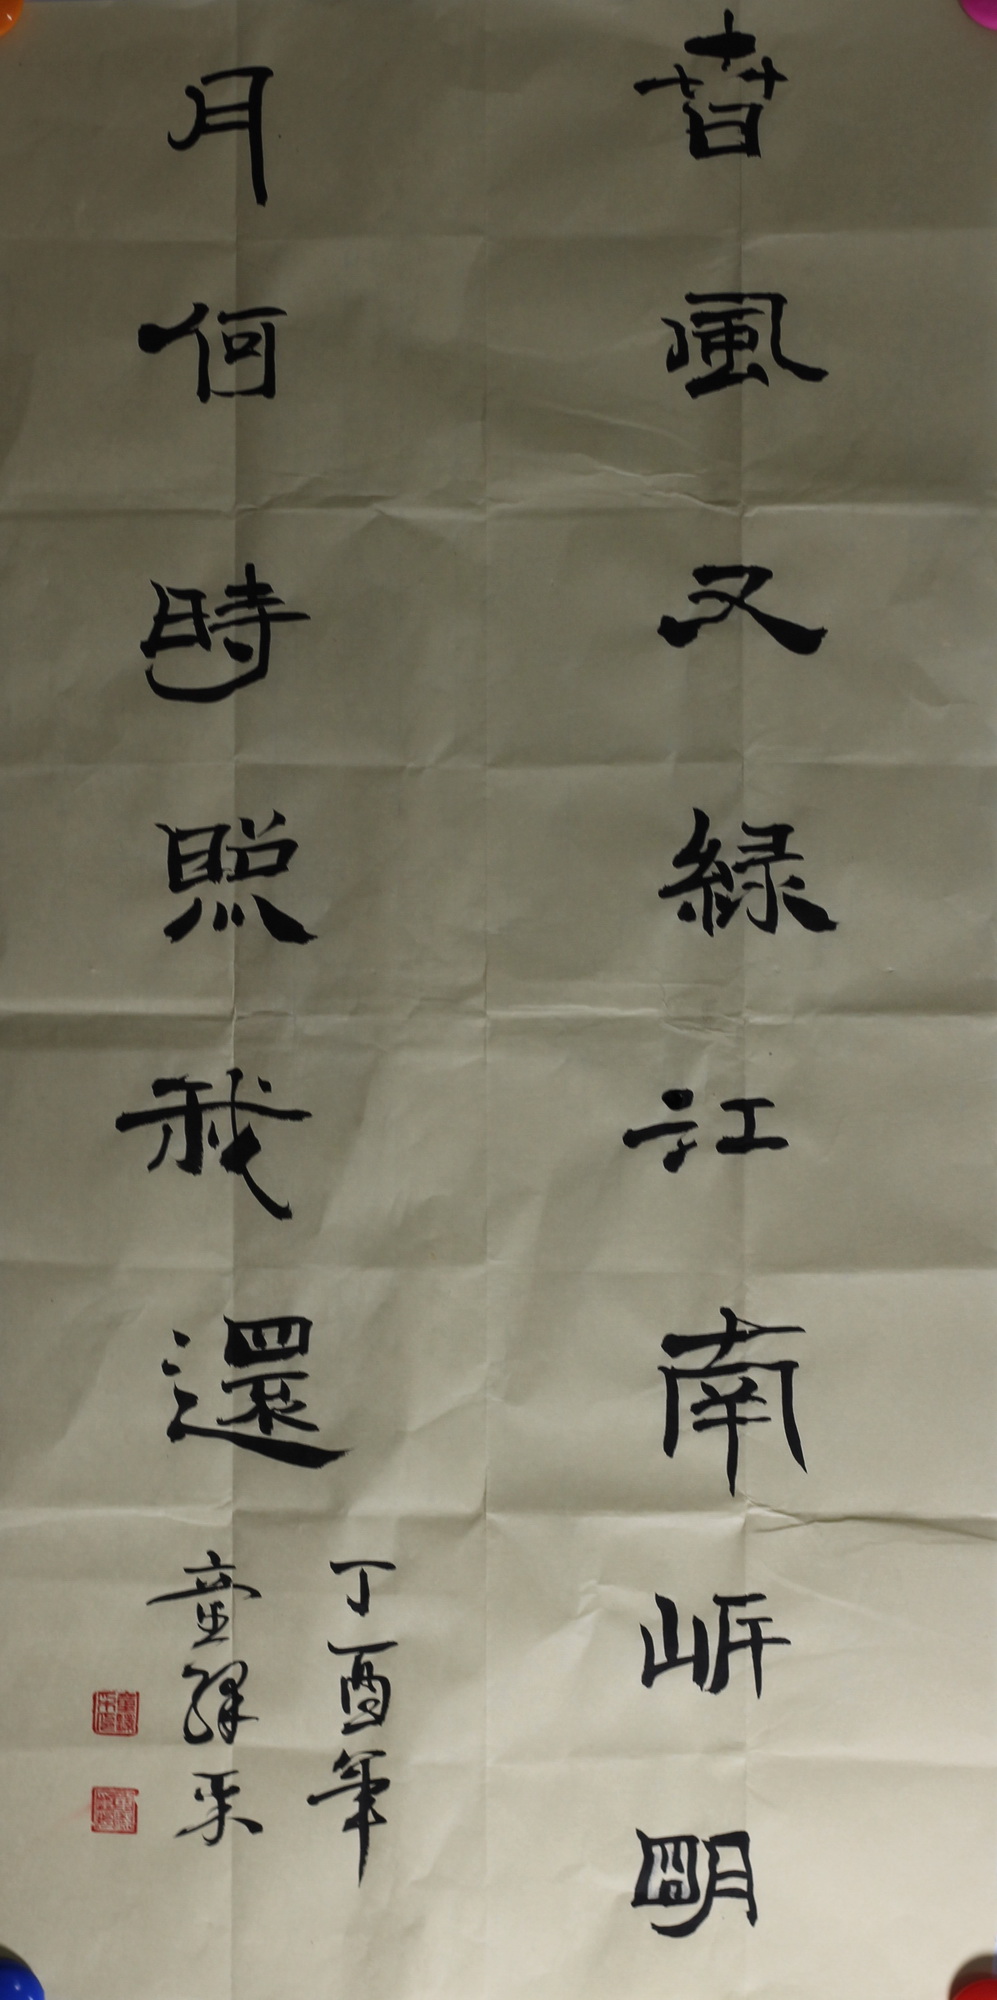 春風又緑江南岸明
月何時照我還
丁酉年
童